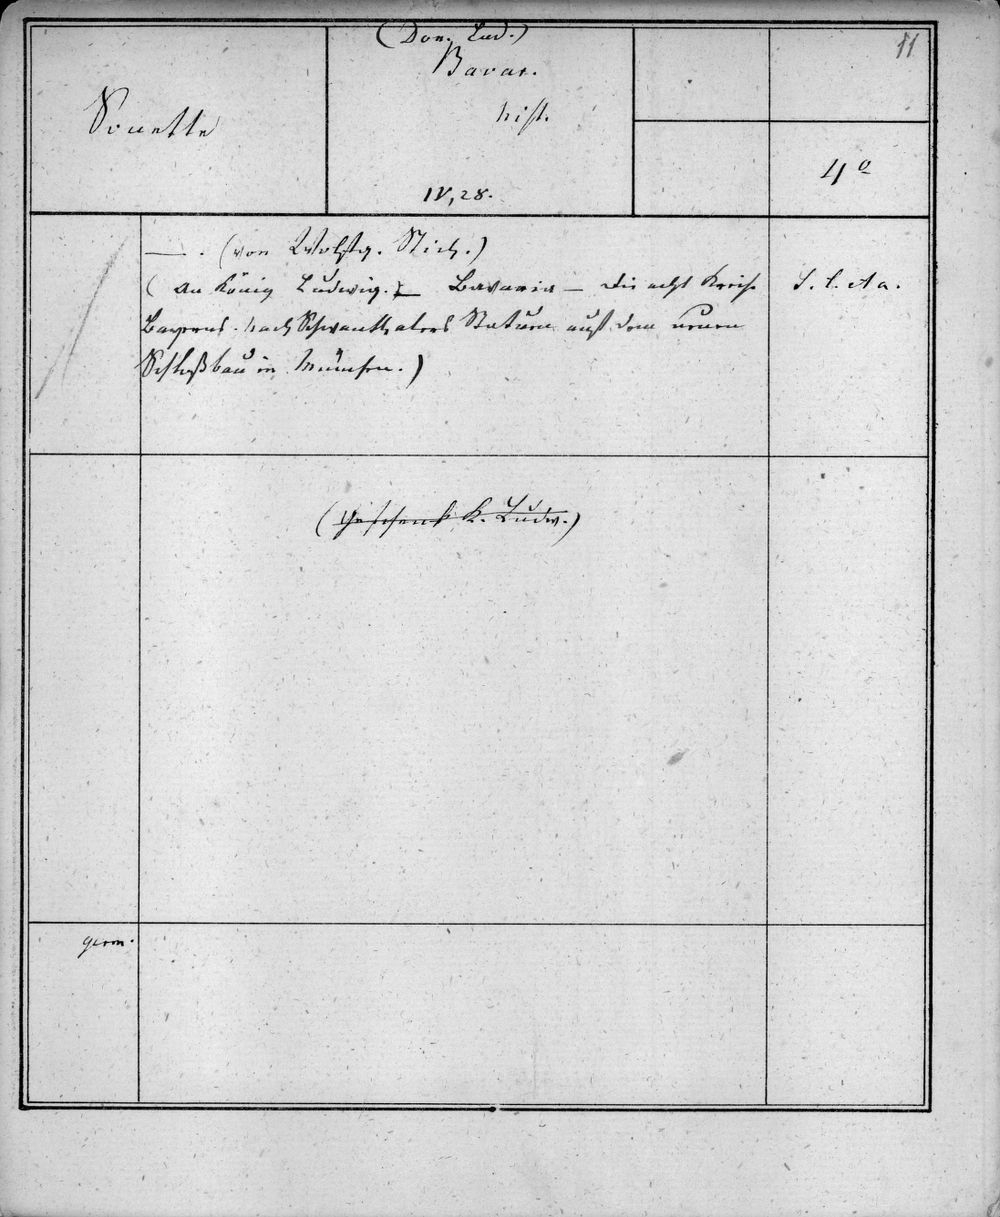 (Don. Lud.)
Bavar.
11
Sonette
hist.
4º
IV, 28.
— . (von Wolfg. Stich.)
(An König Ludwig. — Bavaria — die acht Kreise
S. l. et a.
Bayerns. nach Schwanthalers Statuen auf dem neuen
Schloßbau in München.)
(Geschenk K. Ludw.)
germ.